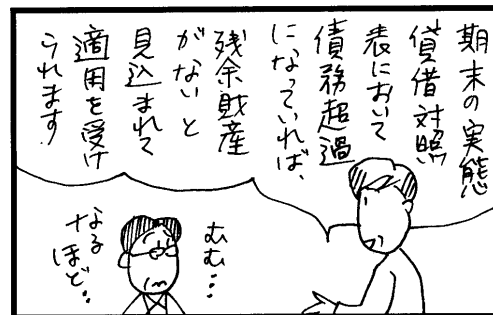 期末の実態
貸借対照
表において
債務超過
になっていれば、
残余財産
がないと
見込まれて
適用を受け
られます
むむ…
なる
ほど‥